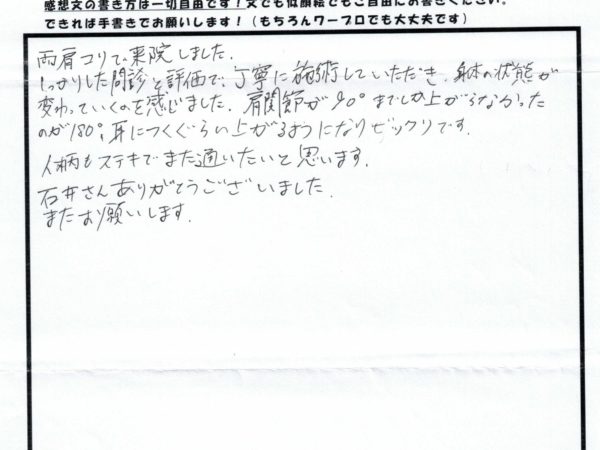 感想文の書き方は一切自由です!文でも似顔絵でもご自由にお書きください。
できれば手書きでお願いします!(もちろんワープロでも大丈夫です)
両肩コリで来院しました.
しっかりした問診と評価で、丁寧に施術していただき、身体の状態が
変わっていくのを感じました. 肩関節が90°までしか上がらなかった
のが180°、耳につくぐらい上がるようになりビックリです.
人柄もステキでまた通いたいと思います.
石井さんありがとうございました.
またお願いします.